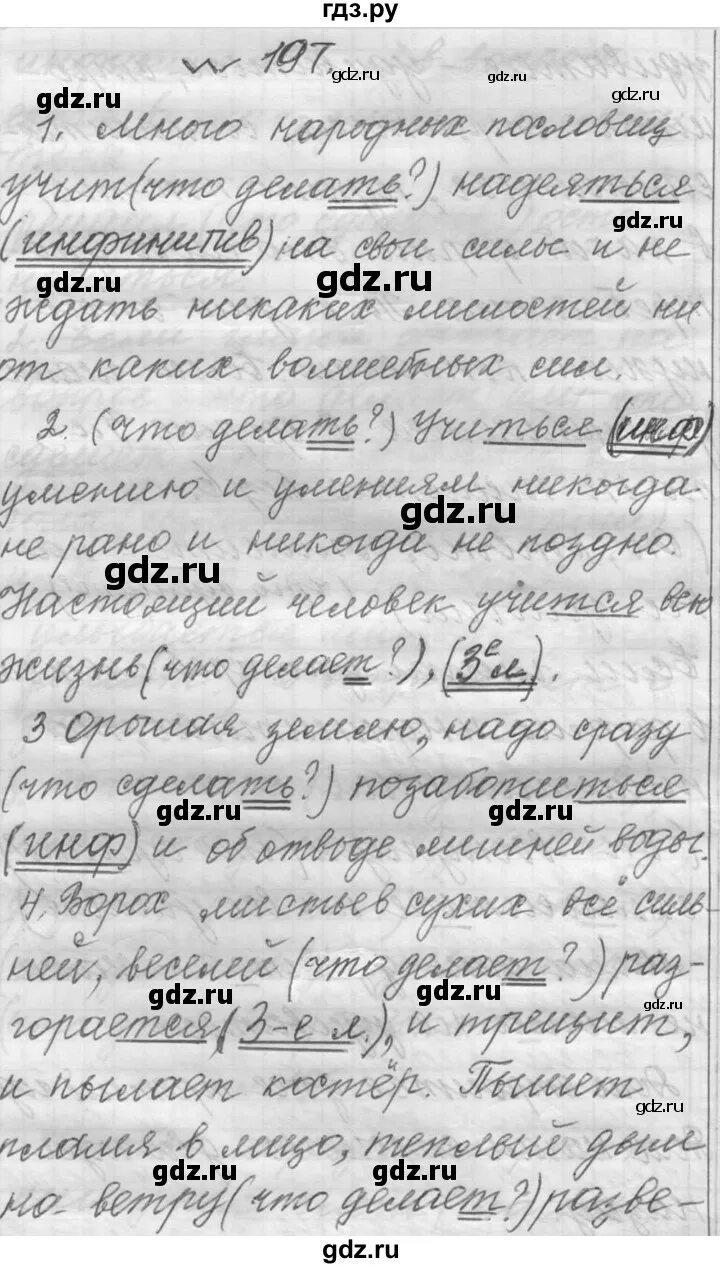 гдз.ру
№ 197
gdz.ru
gdz.ru
gdz.ru
gdz.ru
1. Много народных пословиц
учит(что делать?) надеяться
gdz.ru
(инфинитив) на свои силы и не
gdz.ru
gdz.ru
ждать никаких милостей ни
от каких волшебных сил.
2. (что делать?) Учиться (инф)
умению и умениям никогда
gdz.ru
не рано и никогда не поздно.
gdz.ru
Настоящий человек учится всю
жизнь(что делает?), (3е л.).
3 Орошая землю, надо сразу
(что сделать?) позаботиться
gdz.ru
gdz.ru
(инф) и об отводе лишней воды.
4. Ворох листьев сухих всё силь-
ней, веселей (что делает?) раз-
gdz.ru
gdz.ru
gdz.ru
горается, (3-е л.), и трещит,
и пылает костёр. Пышет
gdz.ru
пламя в лицо, теплый дым
gdz.ru
gdz.ru
на ветру(что делает?) разве-
gdz.ru